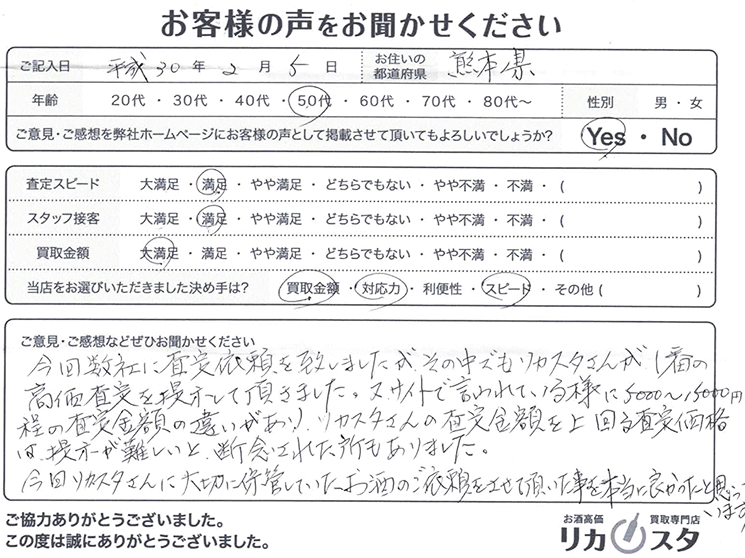 お客様の声をお聞かせください
ご記入日 平成 30 年 2 月 5 日 お住いの都道府県 熊本県
年齢 20代 ・ 30代 ・ 40代 ・ 50代 ・ 60代 ・ 70代 ・ 80代〜 性別 男 ・ 女
ご意見・ご感想を弊社ホームページにお客様の声として掲載させて頂いてもよろしいでしょうか? Yes ・ No
査定スピード 大満足 ・ 満足 ・ やや満足 ・ どちらでもない ・ やや不満 ・ 不満 ・ ( )
スタッフ接客 大満足 ・ 満足 ・ やや満足 ・ どちらでもない ・ やや不満 ・ 不満 ・ ( )
買取金額 大満足 ・ 満足 ・ やや満足 ・ どちらでもない ・ やや不満 ・ 不満 ・ ( )
当店をお選びいただきました決め手は? 買取金額 ・ 対応力 ・ 利便性 ・ スピード ・ その他 ( )
ご意見・ご感想などぜひお聞かせください
今回数社に査定依頼を致しましたが、その中でもリカスタさんが1番の
高価査定を提示して頂きました。又、サイトで言われている様に5000〜15000円
程の査定金額の違いがあり、リカスタさんの査定金額を上回る査定価格
は、提示が難しいと、断念された所もありました。
今回リカスタさんに大切に保管していたお酒のご依頼をさせて頂いた事を本当に良かったと思って
います。
ご協力ありがとうございました。
この度は誠にありがとうございました。
お酒高価 買取専門店
リカスタ